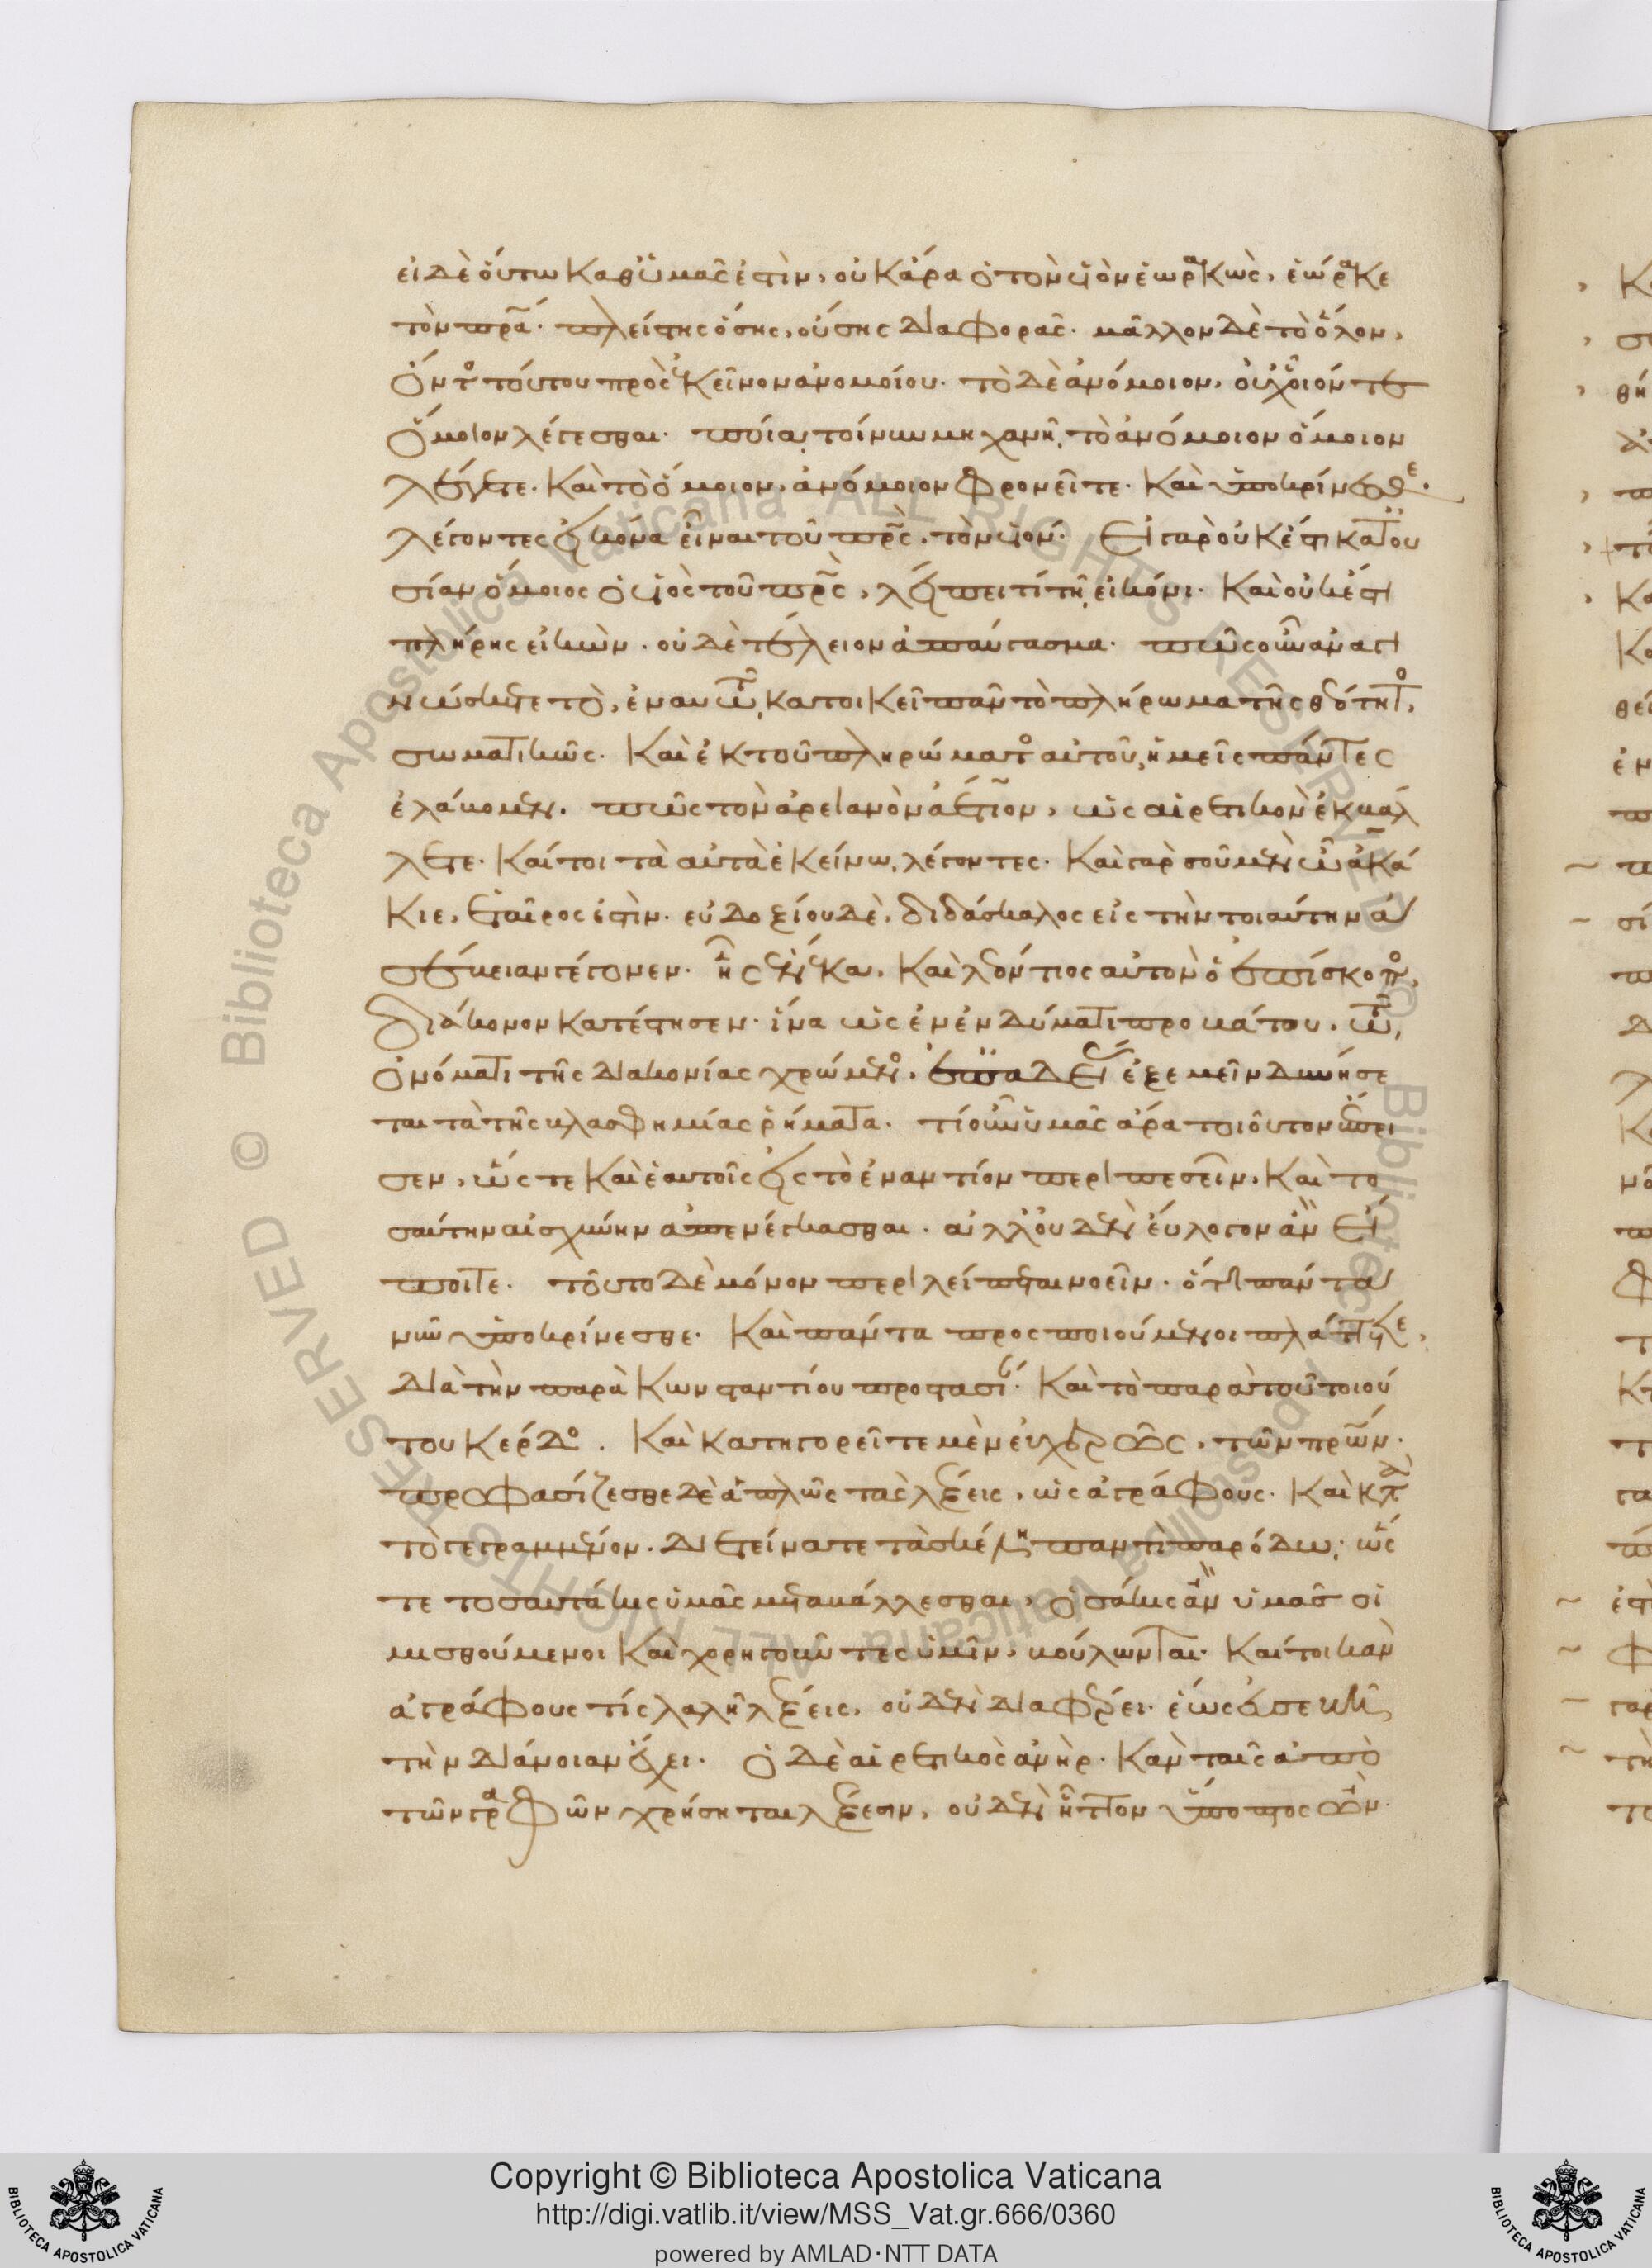 εἰ δὲ οὕτω καθ' ὑμᾶς ἐστὶν, οὐκ ἄρα ὁ τὸν υἱὸν ἑωρακὼς, ἑώρακε
τὸν πρα. πλείστης ὅσης, οὔσης διαφορᾶς. μᾶλλον δὲ τὸ ὅλον,
ὄντος τούτου πρὸς ἐκεῖνον ἀνομοίου. τὸ δὲ ἀνόμοιον, οὐχ οἷόν τε
ὅμοιον λέγεσθαι. ποία τοίνυν μηχανῆ, τὸ ἀνόμοιον ὅμοιον
λέγετε. καὶ τὸ ὅμοιον, ἀνόμοιον φρονεῖτε. καὶ ὑποκρίνεσθε.
λέγοντες εἰκόνα εἶναι τοῦ πρς, τὸν υἱόν. εἰ γὰρ οὐκ ἔστι κατ' οὐ
σίαν ὅμοιος ὁ υἱὸς τοῦ πρς, λείπει τί τῆ εἰκόνι. καὶ οὐκ ἔστι
πλήρης εἰκὼν. οὐδὲ τέλειον ἀπαύγασμα. πῶς οὖν ἀναγι
νώσκετε τὸ, ἐν αυτῶ κατοικεῖ πᾶν τὸ πλήρωμα τῆς θεότητος,
σωματικῶς. καὶ ἐκ τοῦ πληρώματος αὐτοῦ, ἡμεῖς πάντες
ἐλάβομεν. πῶς τὸν ἀρειανὸν ἀέτιον, ὡς αἱρετικὸν ἐκβάλ
λετε. καίτοι τὰ αὐτὰ ἐκείνω, λέγοντες. καὶ γὰρ σοῦ μὲν ὦ ἀκά
κιε, ἑταῖρος ἐστὶν. εὐδοξίου δὲ, διδάσκαλος εἰς τὴν τοιαύτην ἀ
σέβειαν γέγονεν. ἧς ἕνεκα, καὶ λεόντιος αὐτον ὁ ἐπίσκοπος,
διάκονον κατέστησεν. ἵνα ὡς ἐν ἐνδύματι προβάτου, τῶ
ὀνόματι τῆς διακονίας χρώμενος, ἐπ' ἀδείας ἐξεμεῖν δυνήσε
ται τὰ τῆς βλασφημίας ῥήματα. τί οὖν ὑμᾶς ἄρα τοιοῦτον ἔπει
σεν, ὥστε καὶ ἑαυτοῖς εἰς τὸ ἐναντίον περιπεσεῖν, καὶ το
σαύτην αἰσχύνην ἀπενέγκασθαι. ἀλλ' οὐδὲν εὔλογον ἂν εἴ
ποιτε. τοῦτο δὲ μόνον περιλείπεται νοεῖν. ὅτι πάντα
νῦν ὑποκρίνεσθε. καὶ πάντα προσποιούμενοι πλάττεσθε,
διὰ τὴν παρὰ κωνσταντίου προστασίαν. καὶ τὸ παρὰ τοῦ τοιού
του κέρδος. καὶ κατηγορεῖτε μὲν εὐχερῶς, τῶν πρων.
προφασίζεσθε δὲ ἁπλῶς τὰς λέξεις, ὡς ἀγράφους. καὶ κατὰ
τὸ γεγραμμένον. διετείνατε τὰ σκέλη παντὶ παρόδω, ὥς
τε τοσαυτάκις ὑμᾶς μεταβάλλεσθαι, ὁσάκις ἂν ὑμᾶς οἱ
μισθούμενοι καὶ χορηγοῦντες ὑμῖν, βούλωνται. καίτοι κἂν
ἀγράφους τίς λαλῆ λέξεις, οὐδὲν διαφέρει. ἕως εὐσεβῆ
τὴν διάνοιαν ἔχει. ὁ δὲ αἱρετικὸς ἀνὴρ. κἂν ταῖς ἀπὸ
τῶν γραφῶν χρήσηται λέξεσιν, οὐδὲν ἧττον ὕποπτος ὢν.